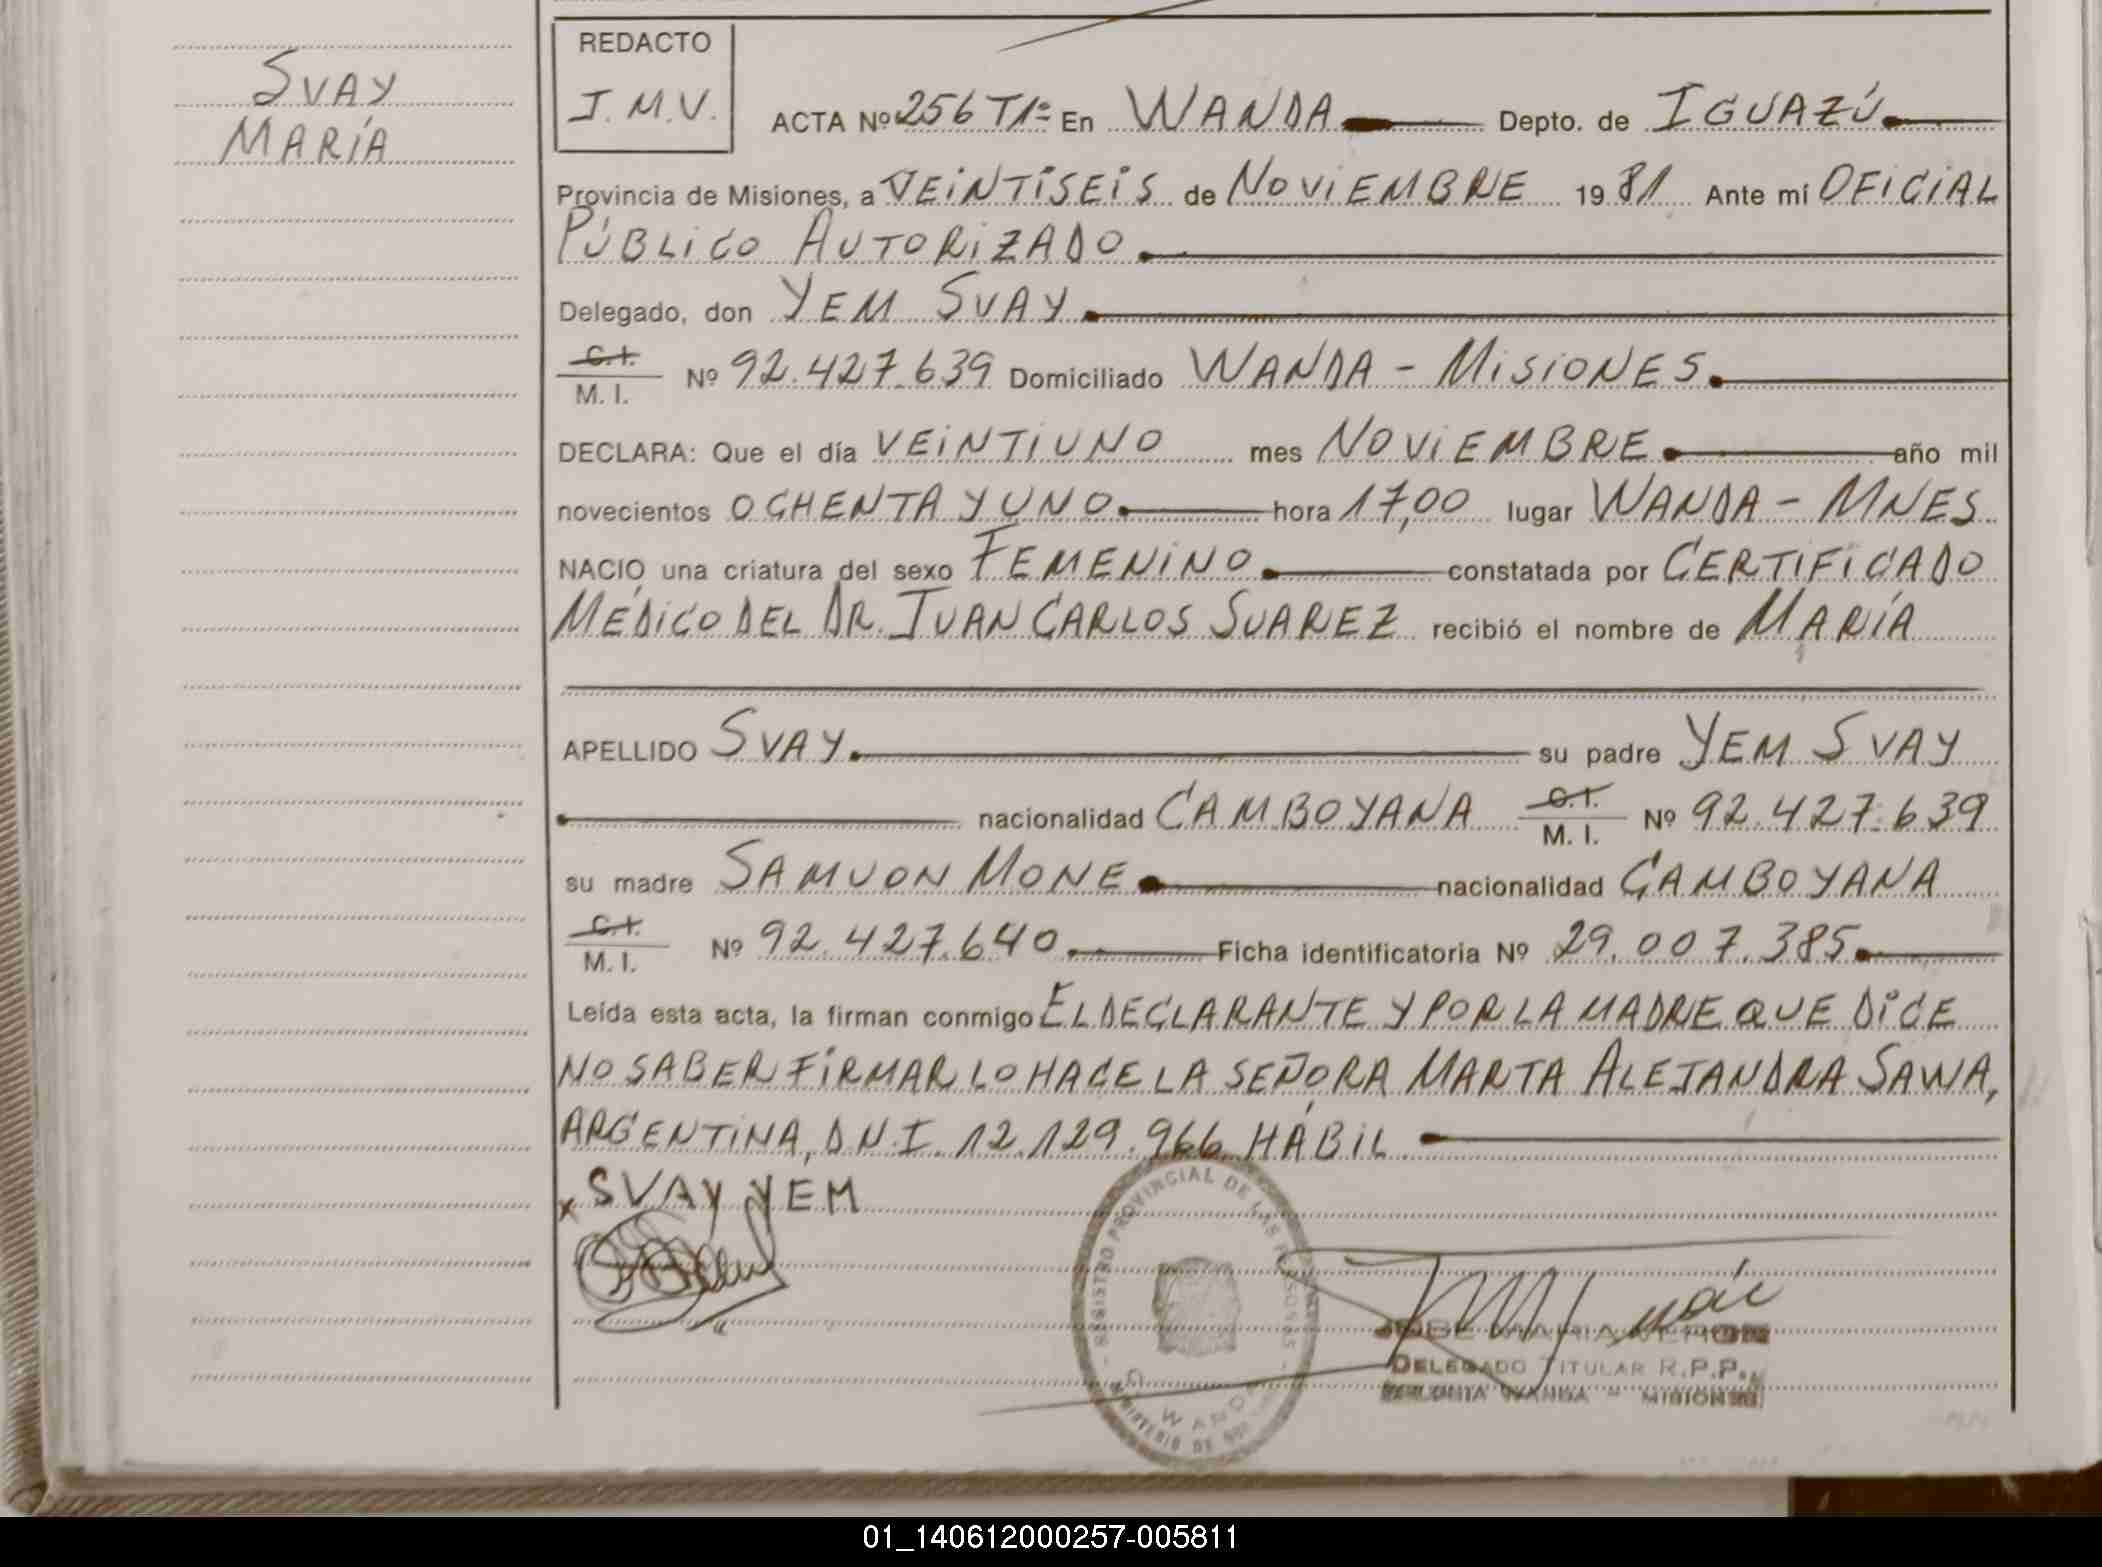 SVAY
MARÍA
REDACTO
J. M. V.
ACTA Nº 256 T1º En WANDA Depto. de IGUAZÚ
Provincia de Misiones, a VEINTISEIS de NOVIEMBRE 1981 Ante mí OFICIAL
PÚBLICO AUTORIZADO
Delegado, don YEM SVAY
C.I. M. I. Nº 92.427.639 Domiciliado WANDA - MISIONES
DECLARA: Que el día VEINTIUNO mes NOVIEMBRE año mil
novecientos OCHENTA Y UNO hora 17,00 lugar WANDA - MNES
NACIO una criatura del sexo FEMENINO constatada por CERTIFICADO
MÉDICO DEL DR. JUAN CARLOS SUAREZ recibió el nombre de MARÍA
APELLIDO SVAY su padre YEM SVAY
nacionalidad CAMBOYANA C.I. M. I. Nº 92.427.639
su madre SAMUON MONE nacionalidad CAMBOYANA
C.I. M. I. Nº 92.427.640 Ficha identificatoria Nº 29.007.385
Leída esta acta, la firman conmigo EL DECLARANTE Y POR LA MADRE QUE DICE
NO SABER FIRMAR LO HACE LA SEÑORA MARTA ALEJANDRA SAWA,
ARGENTINA, D.N.I. 12.129.966, HÁBIL
x SVAY YEM
REGISTRO PROVINCIAL DE LAS PERSONAS
WANDA
MINISTERIO DE
JOSE MARIA VERON
DELEGADO TITULAR R.P.P.
COLONIA WANDA - MISIONES
01_140612000257-005811